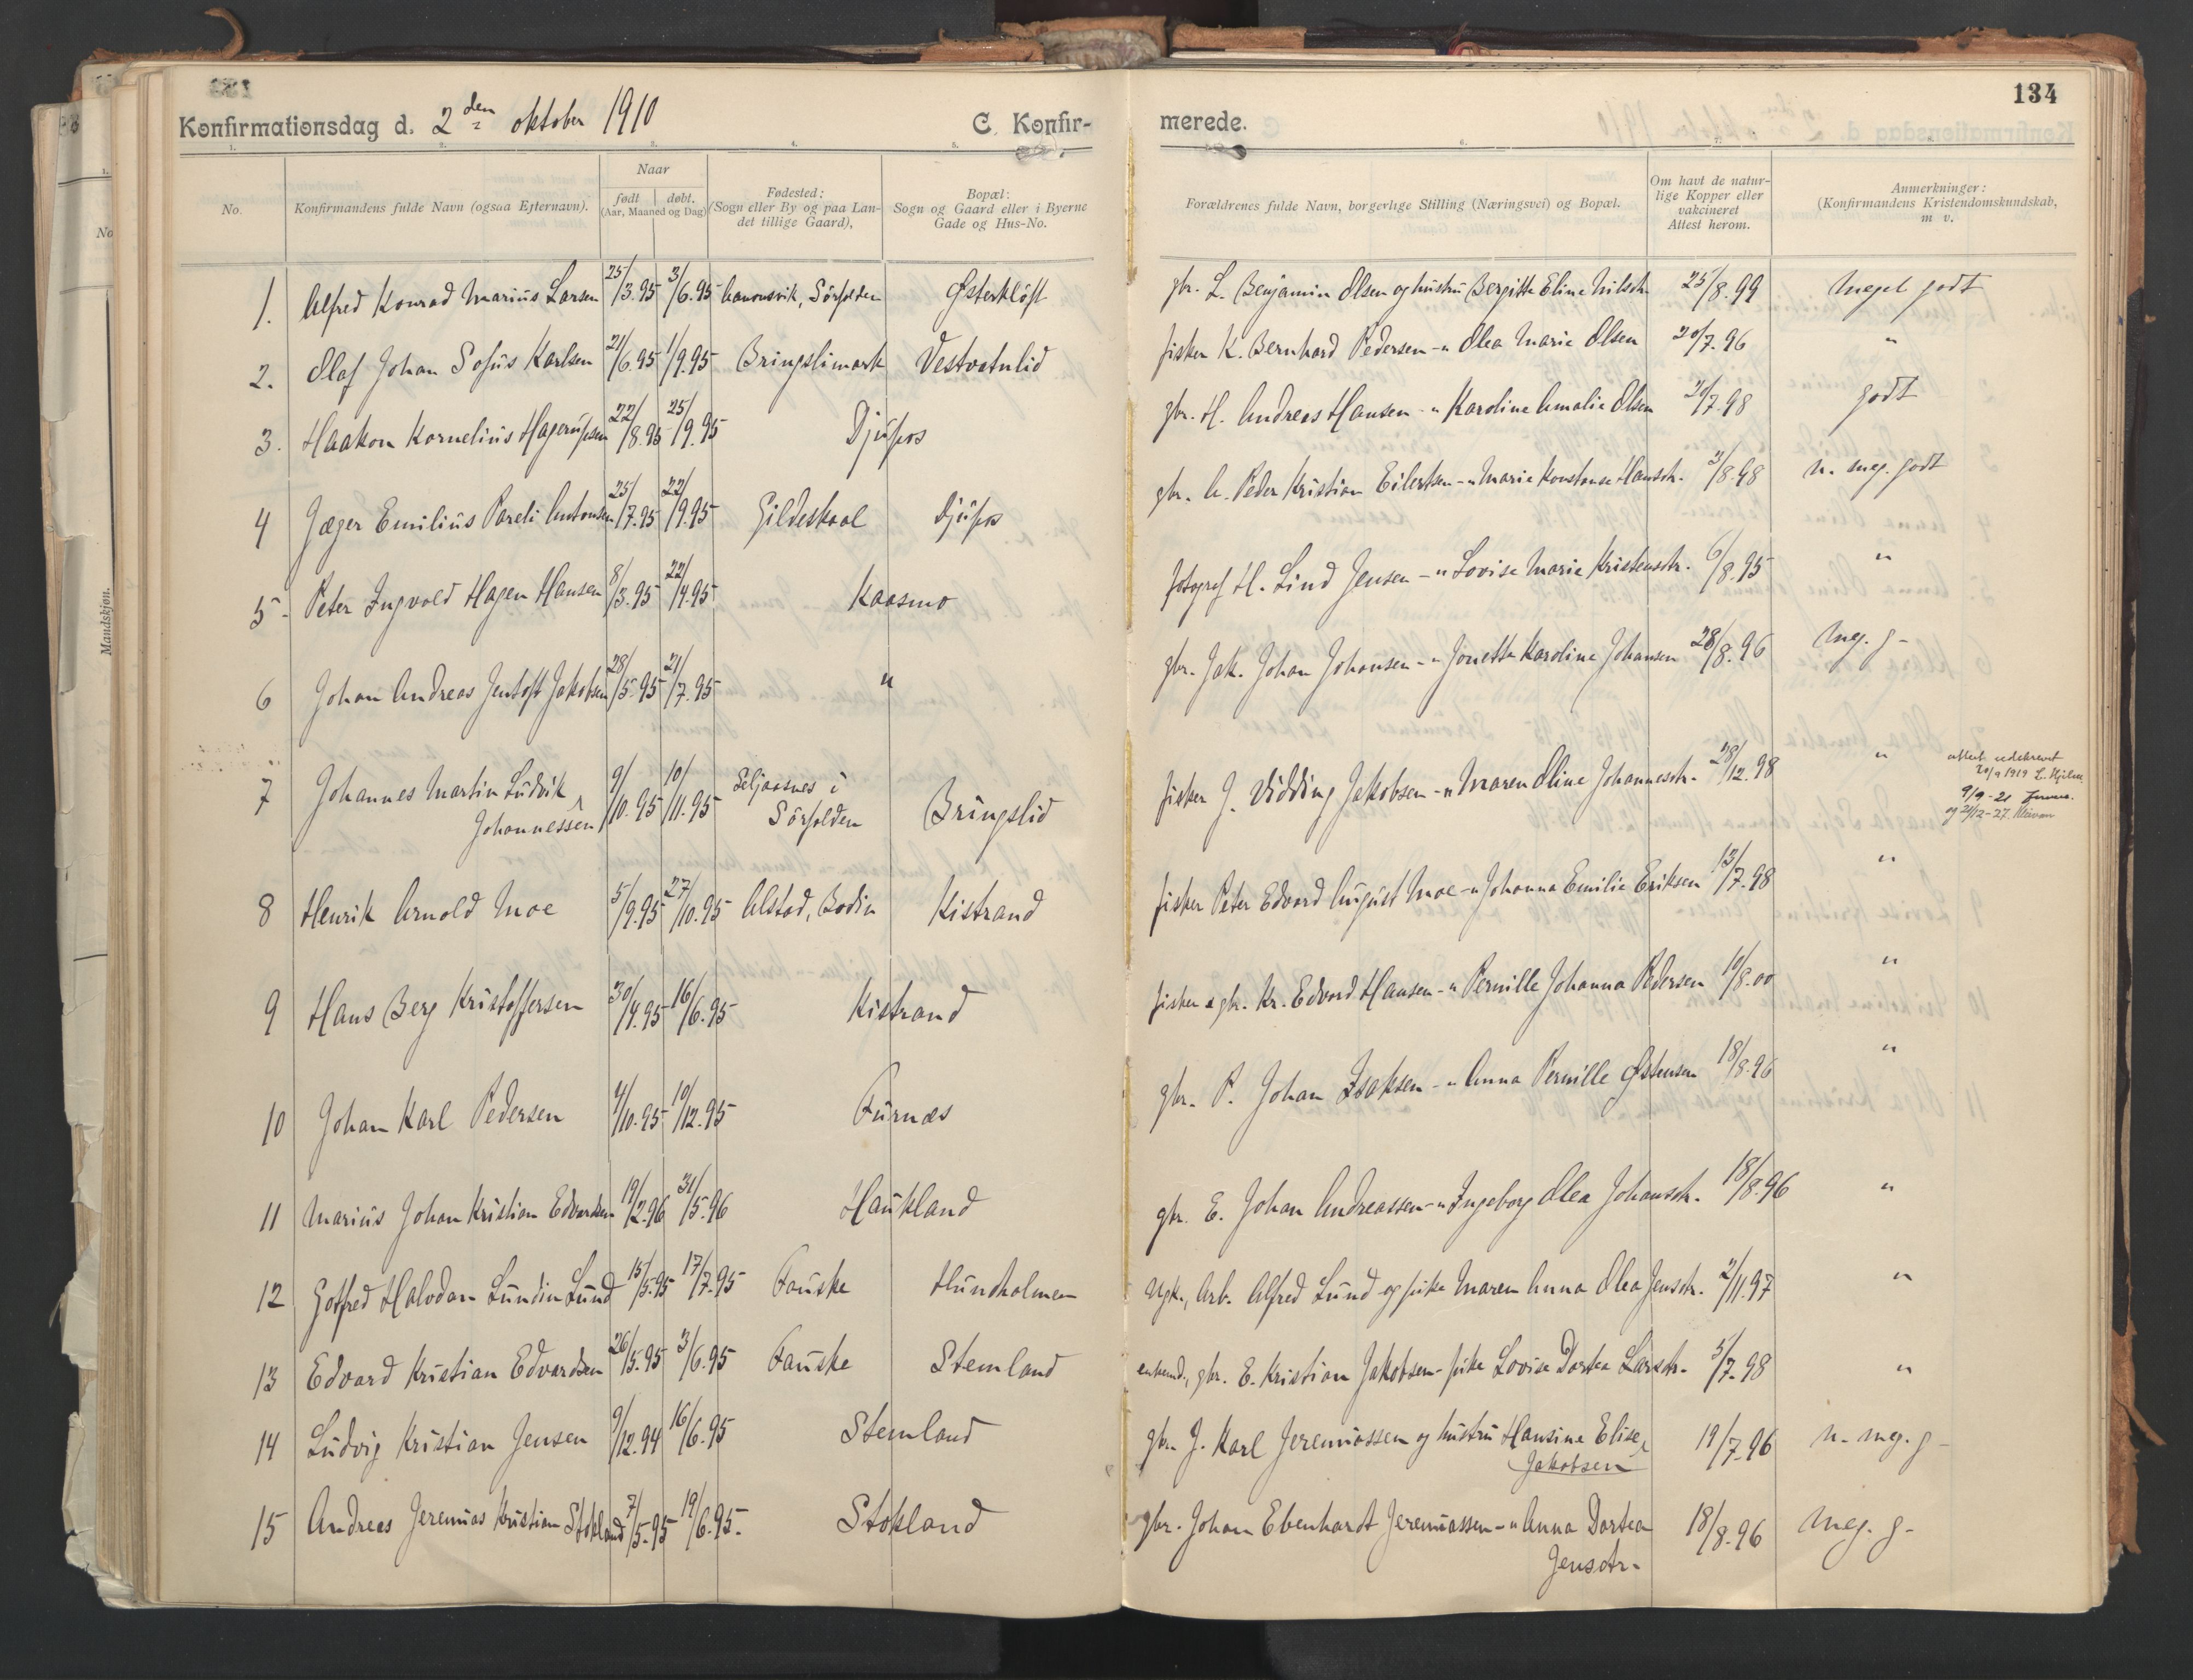 134
Konfirmationsdag d. 2den oktober 1910
C. Konfir-
merede.
1. 2. 3. 4. 5. 6.
No.
Konfirmandens fulde Navn (ogsaa Efternavn).
Naar
født døbt.
(Aar, Maaned og Dag)
Fødested:
(Sogn eller By og paa Lan-
det tillige Gaard),
Bopæl:
Sogn og Gaard eller i Byerne
Gade og Hus-No.
Forældrenes fulde Navn, borgerlige Stilling (Næringsvei) og Bopæl.
Om havt de natur-
lige Kopper eller
vakcineret
Attest herom.
Anmerkninger:
(Konfirmandens Kristendomskundskab,
m v.
No
Mandskjøn.
1. Alfred Konrad Marius Larsen 25/3.95 3/6.95 Sörfolden Østerkløft gbr. L. Benjamin Olsen og hustru Bergitte Eline Nilsdtr. 25/8.99 Meget godt
2. Olaf Johan Sofus Karlsen 21/6.95 1/9.95 Bringslimark Vestvatnlid fisker K. Bernhard Pedersen - " Olea Marie Olsen 20/7.96 "
3. Haakon Kornelius Hagerupsen 22/8.95 25/9.95 Djupos gbr. H. Andreas Hansen - " Karoline Amalie Olsen 20/7.98 godt
4 Jæger Emilius Pareli Antonsen 25/7.95 22/9.95 Gildeskaal Djupos gbr. A. Peder Kristian Eilertsen - " Marie Konstanse Hansdtr. 2/8.98 n. meg. godt
5 - Peter Ingvald Hagen Hansen 8/3.95 22/4.95 Kaasmo fotograf H. Lind Jensen - " Lovise Marie Kristensdtr. 6/8.95 "
6 Johan Andreas Jentoft Jakobsen 28/5.95 21/7.95 " gbr. Jak. Johan Johansen - " Jonette Karoline Johansen 28/8.96 Meg. g -
7 Johannes Martin Ludvik
Johannessen 9/10.95 10/11.95 Seljaasnes i
Sörfolden Bringslid fisker J. Vidding Jakobsen - " Maren Oline Johannesdtr. 28/12.98 "
attest 20/9 1919
9/9-21
og 21/12-27.
8 Henrik Arnold Moe 5/9.95 27/10.95 Alstad, Bodin Kistrand fisker Peter Edvard August Moe - " Johanna Emilie Eriksen 13/7.98 "
9 Hans Berg Kristoffersen 30/4.95 16/6.95 Kistrand fisker & gbr. Kr. Edvard Hansen - " Pernille Johanna Pedersen 10/8.00 "
10 Johan Karl Pedersen 4/10.95 10/12.95 Furnæs gbr. P. Johan Isaksen - " Anna Pernille Østensen 18/8.96 "
11 Marius Johan Kristian Edvardsen 19/2.96 31/5.96 Haukland gbr. E. Johan Andreassen - " Ingeborg Olea Johansdtr. 18/8.96 "
12 Gotfred Halvdan Lundin Lund 15/5.95 17/7.95 Fauske Hundholmen Ugk., Arb. Alfred Lund og pike Maren Anna Olea Jensdtr. 2/11.97 "
13 Edvard Kristian Edvardsen 26/5.95 3/6.95 Fauske Stemland enkemd., gbr. E. Kristian Jakobsen - pike Lovise Dortea Larsdtr. 5/7.98 "
14 Ludvig Kristian Jensen 9/12.94 16/6.95 Stemland gbr. J. Karl Jeremiassen og hustru Hansine Elise
Jakobsen 19/7.96 n. meg. g -
15 Andreas Jeremias Kristian Stokland 7/5.95 19/6.95. Stokland gbr. Johan Ebenhardt Jeremiassen - " Anna Dortea
Jensdtr. 18/8.96 Meg. g -